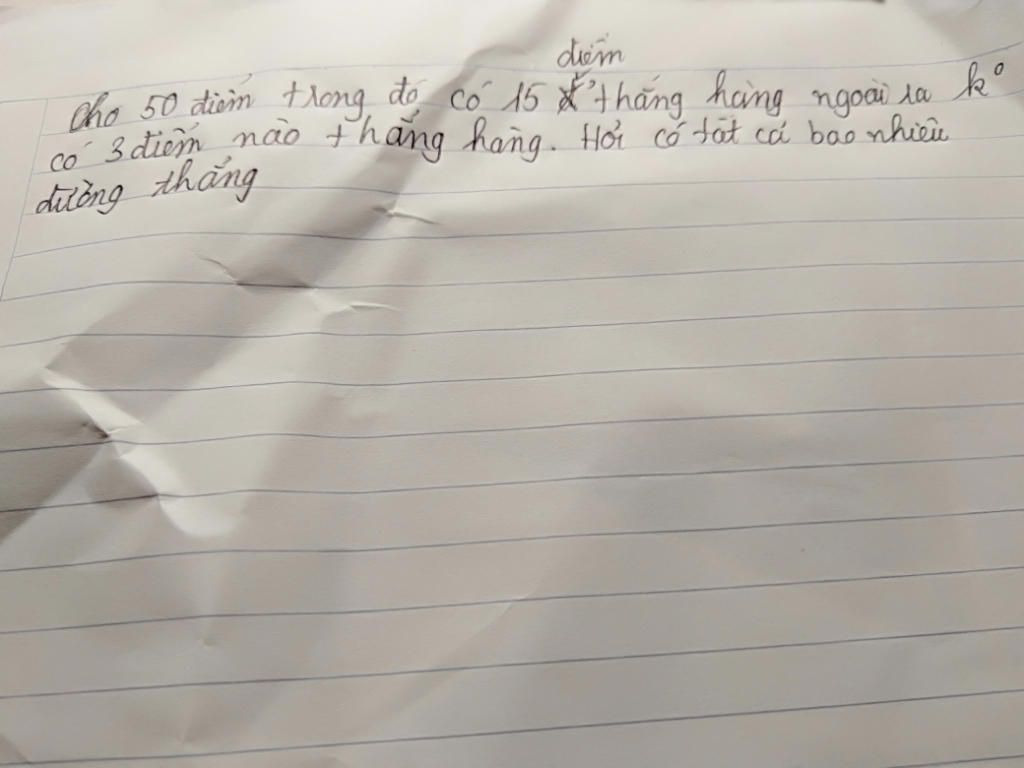 điểm
Cho 50 điểm trong đó có 15 thẳng hàng ngoài ra k°
có 3 điểm nào thẳng hàng. Hỏi có tất cả bao nhiêu
đường thẳng